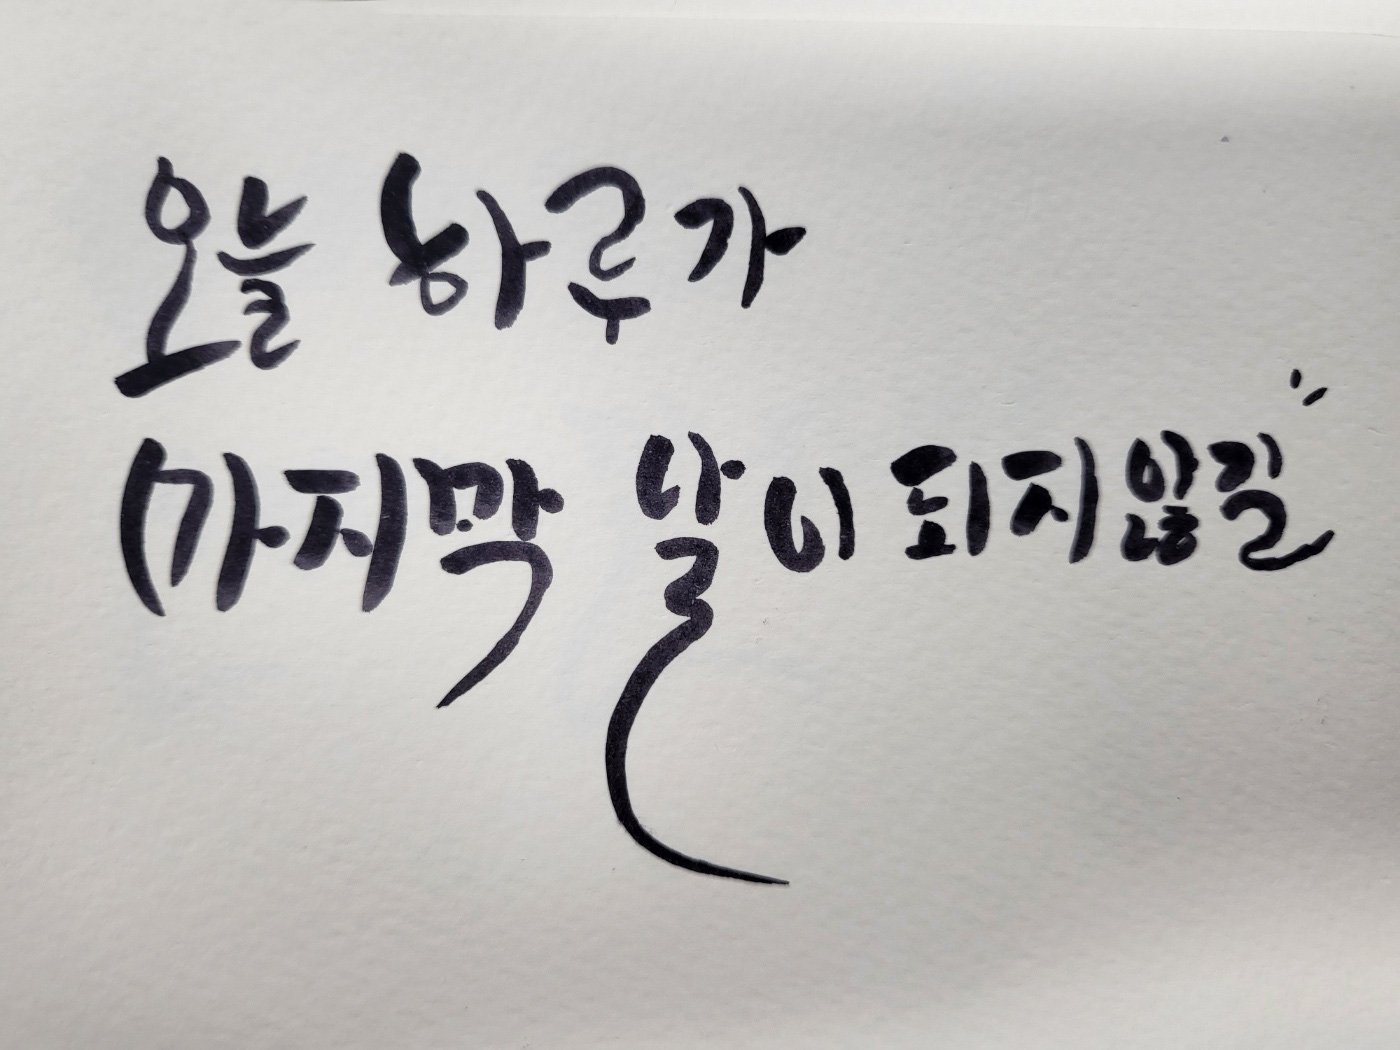 오늘 하루가
마지막 날이 되지 않길